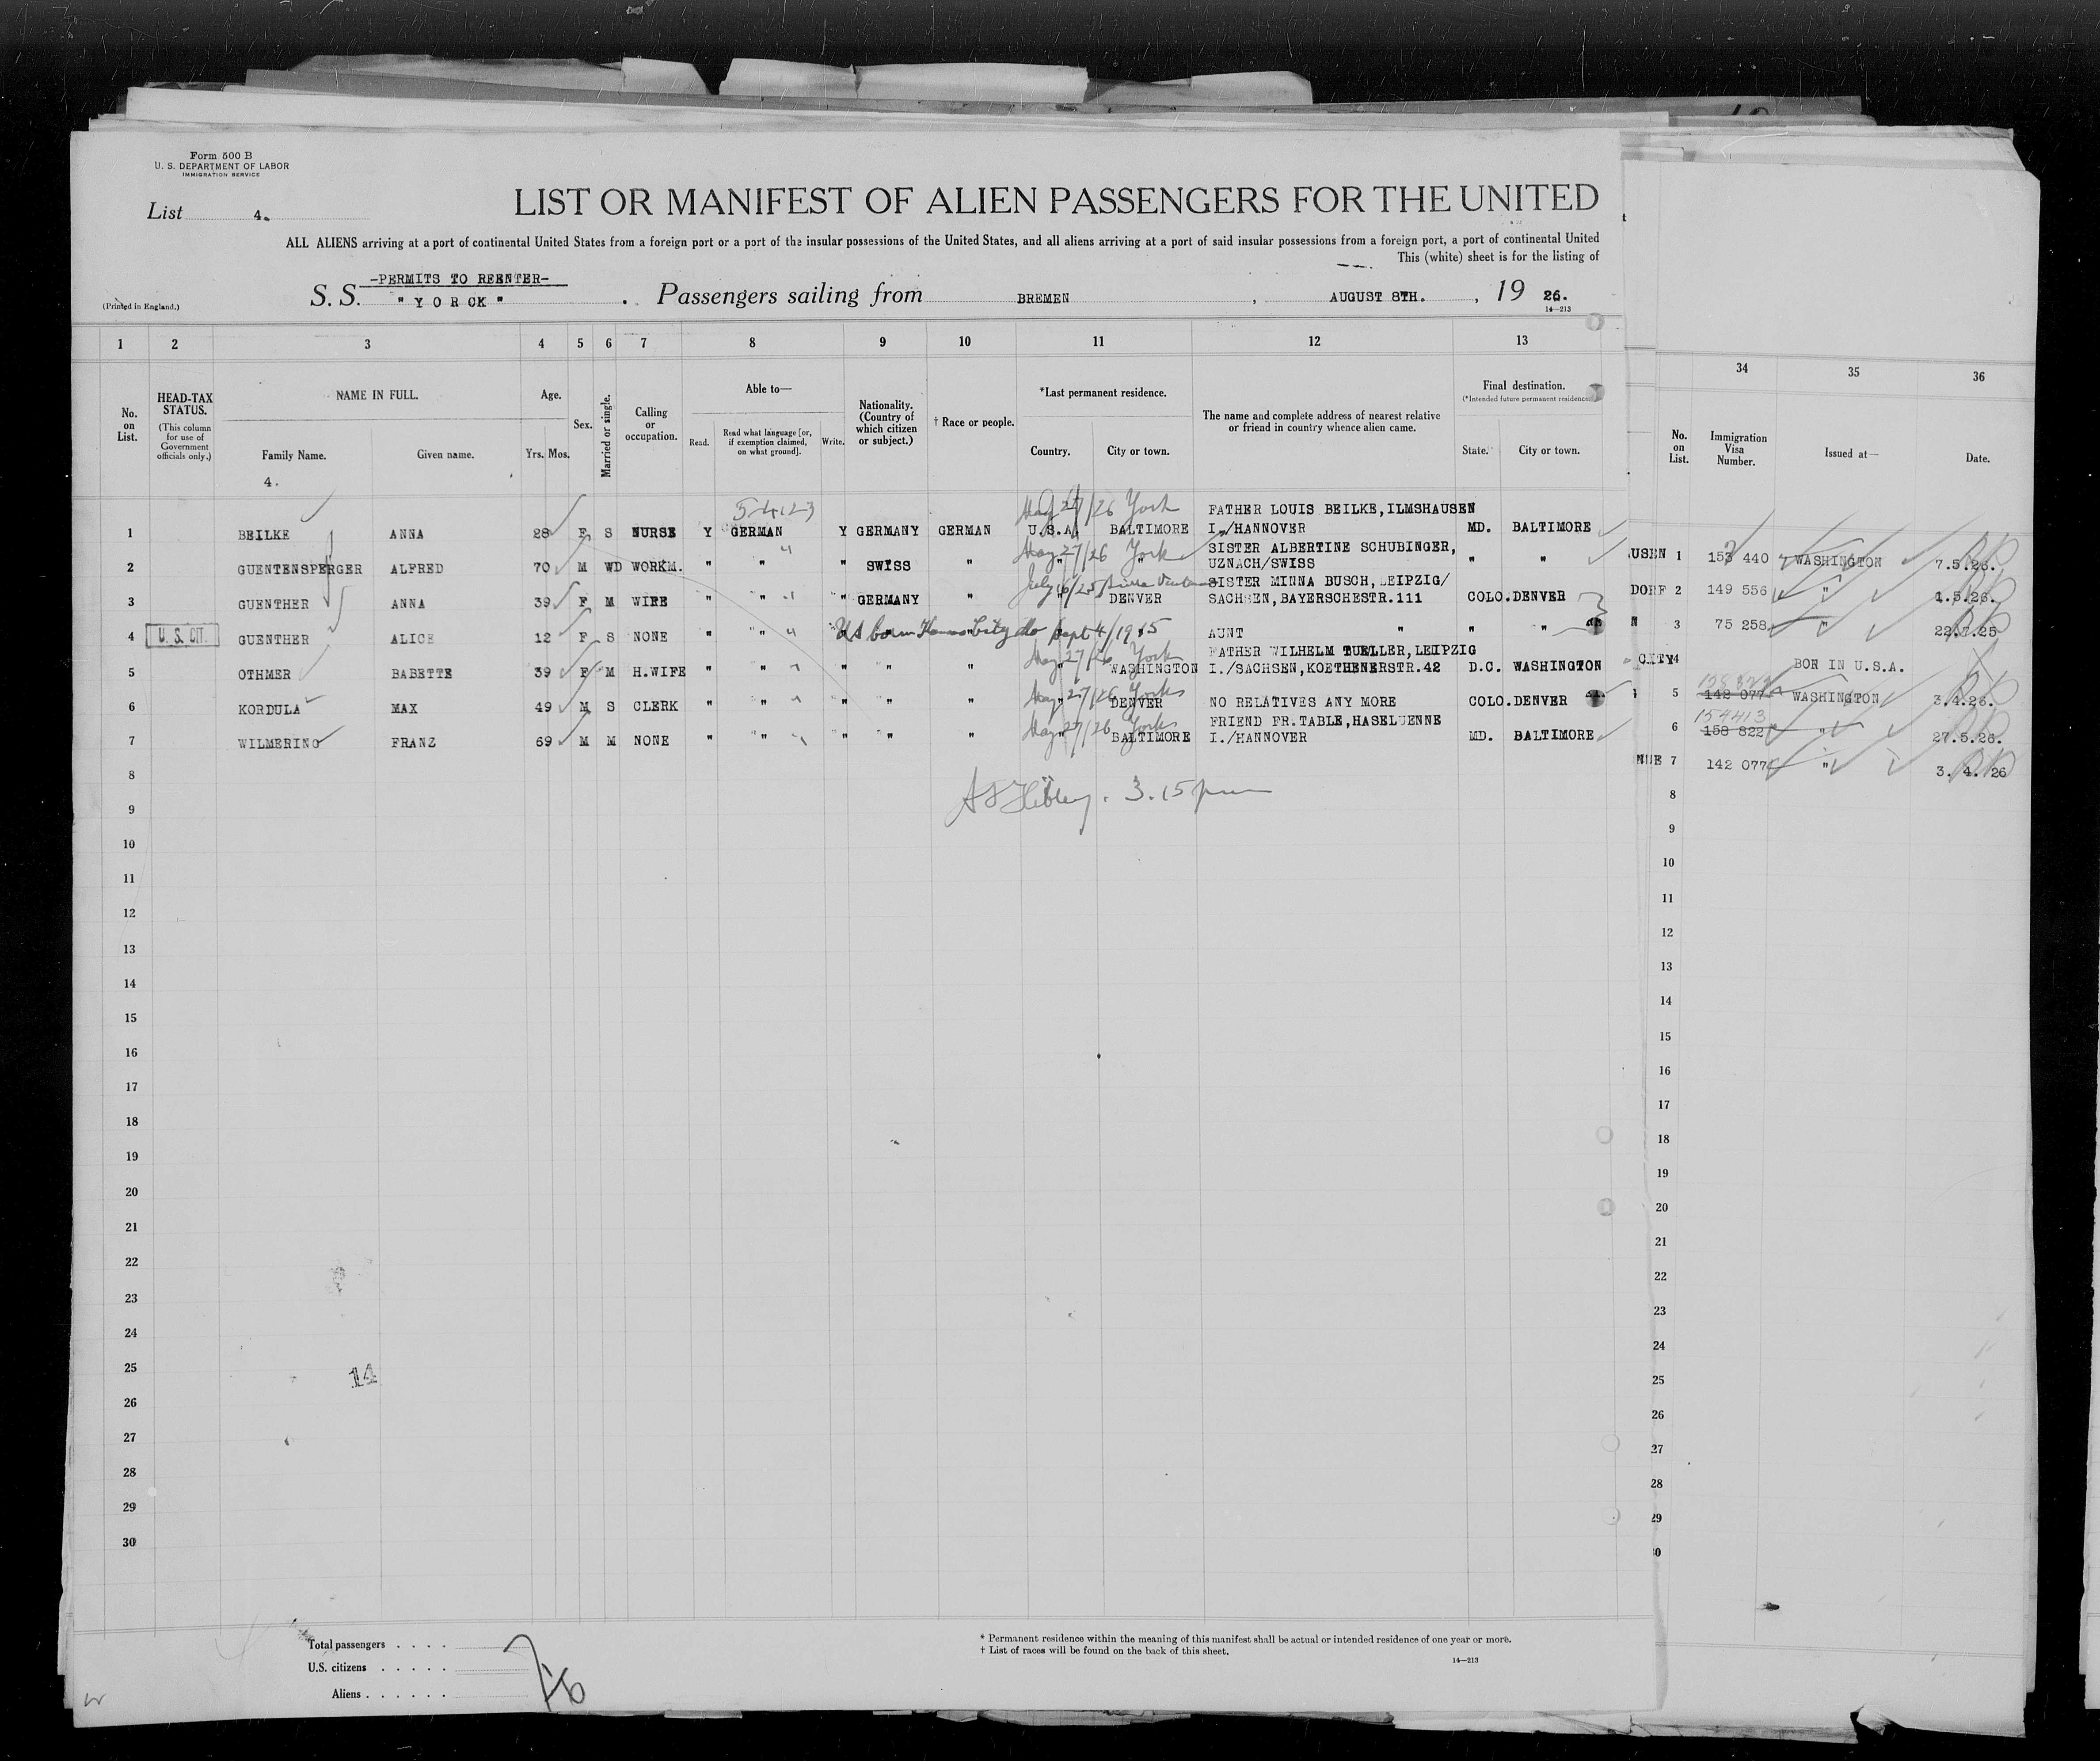 Form 500 B
U. S. DEPARTMENT OF LABOR
IMMIGRATION SERVICE
List 4.
LIST OR MANIFEST OF ALIEN PASSENGERS FOR THE UNITED
ALL ALIENS arriving at a port of continental United States from a foreign port or a port of the insular possessions of the United States, and all aliens arriving at a port of said insular possessions from a foreign port, a port of continental United
This (white) sheet is for the listing of
-PERMITS TO REENTER-
S. S. "YORCK" . Passengers sailing from BREMEN , AUGUST 8TH. , 19 26.
(Printed in England.)
14—213
1 2 3 4 5 6 7 8 9 10 11 12 13
No. on List.
HEAD-TAX STATUS.
(This column for use of Government officials only.)
NAME IN FULL.
Family Name. Given name.
4.
Age.
Yrs. Mos.
Sex.
Married or single.
Calling or occupation.
Able to—
Read. Read what language [or, if exemption claimed, on what ground]. Write.
Nationality. (Country of which citizen or subject.)
† Race or people.
*Last permanent residence.
Country. City or town.
The name and complete address of nearest relative or friend in country whence alien came.
Final destination.
(*Intended future permanent residence.)
State. City or town.
54123
May 27/26 York
FATHER LOUIS BEILKE, ILMSHAUSEN
1 BEILKE ANNA 28 F S NURSE Y GERMAN Y GERMANY GERMAN U.S.A. BALTIMORE I./HANNOVER MD. BALTIMORE
May 27/26 York
SISTER ALBERTINE SCHUBINGER,
2 GUENTENSPERGER ALFRED 70 M WD WORKM. " " " SWISS " " " UZNACH/SWISS " "
July 16/25
SISTER MINNA BUSCH, LEIPZIG/
3 GUENTHER ANNA 39 F M WIFE " " " GERMANY " " DENVER SACHSEN, BAYERSCHESTR.111 COLO. DENVER
4 U. S. CIT. GUENTHER ALICE 12 F S NONE " " " US born Kansas City Mo Sept 4/1915 AUNT " " "
May 27/26 York
FATHER WILHELM TUELLER, LEIPZIG
5 OTHMER BABETTE 39 F M H.WIFE " " " " " " WASHINGTON I./SACHSEN, KOETHENERSTR.42 D.C. WASHINGTON
May 27/26 York
6 KORDULA MAX 49 M S CLERK " " " " " " DENVER NO RELATIVES ANY MORE COLO. DENVER
May 27/26 York
FRIEND FR. TABLE, HASELUENNE
7 WILMERING FRANZ 69 M M NONE " " " " " " BALTIMORE I./HANNOVER MD. BALTIMORE
8
3.15 pm
9
10
11
12
13
14
15
16
17
18
19
20
21
22
23
24
14
25
26
27
28
29
30
Total passengers . . . .
U.S. citizens . . . . .
Aliens . . . . . .
* Permanent residence within the meaning of this manifest shall be actual or intended residence of one year or more.
† List of races will be found on the back of this sheet.
14—213
34 35 36
No. on List.
Immigration Visa Number.
Issued at—
Date.
USEN 1 153 440 WASHINGTON 7.5.26.
DORF 2 149 556 " 1.5.26.
N 3 75 258 " 22.7.25
CITY 4 BORN IN U.S.A.
5 142 077 WASHINGTON 3.4.26.
154413
6 158 822 " 27.5.26.
NNE 7 142 077 " 3. 4. 26
8
9
10
11
12
13
14
15
16
17
18
19
20
21
22
23
24
25
26
27
28
29
30